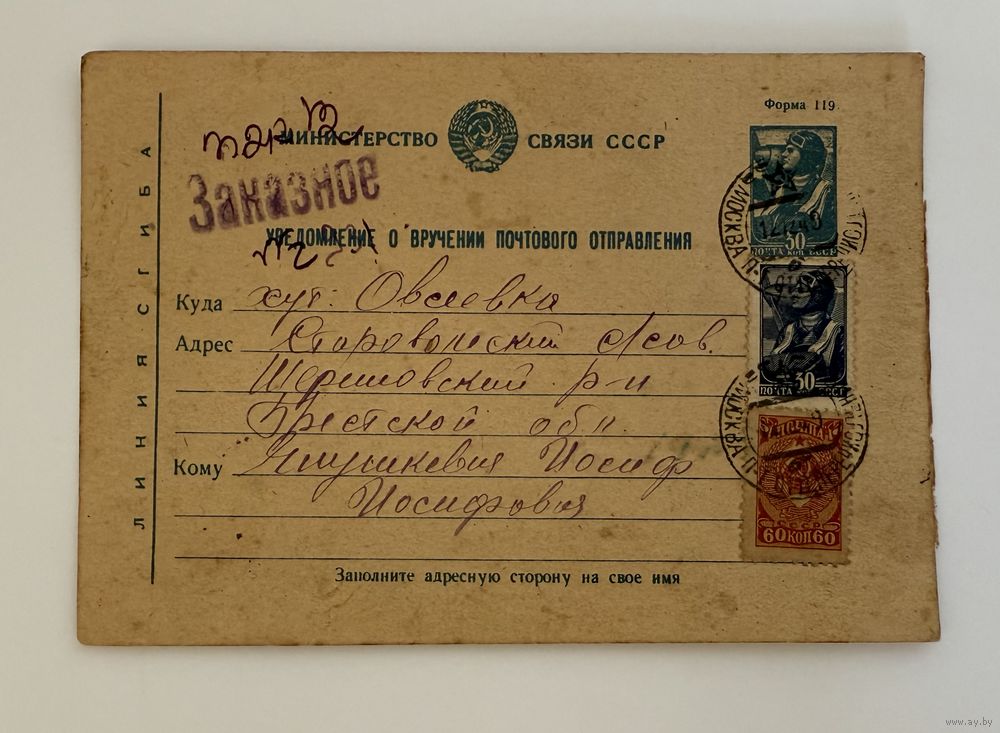 Форма 119.
МИНИСТЕРСТВО СВЯЗИ СССР
Заказное
УВЕДОМЛЕНИЕ О ВРУЧЕНИИ ПОЧТОВОГО ОТПРАВЛЕНИЯ
ЛИНИЯ СГИБА
Куда хут. Овсеевка
Адрес Старовольский с/сов.
Шерешовский р-н
Брестской обл.
Кому Янушкевич Иосиф
Иосифович
Заполните адресную сторону на свое имя
30
ПОЧТА КОП СССР
30
ПОЧТА СССР
СССР
60 КОП 60
МОСКВА
МОСКВА
www.ay.by